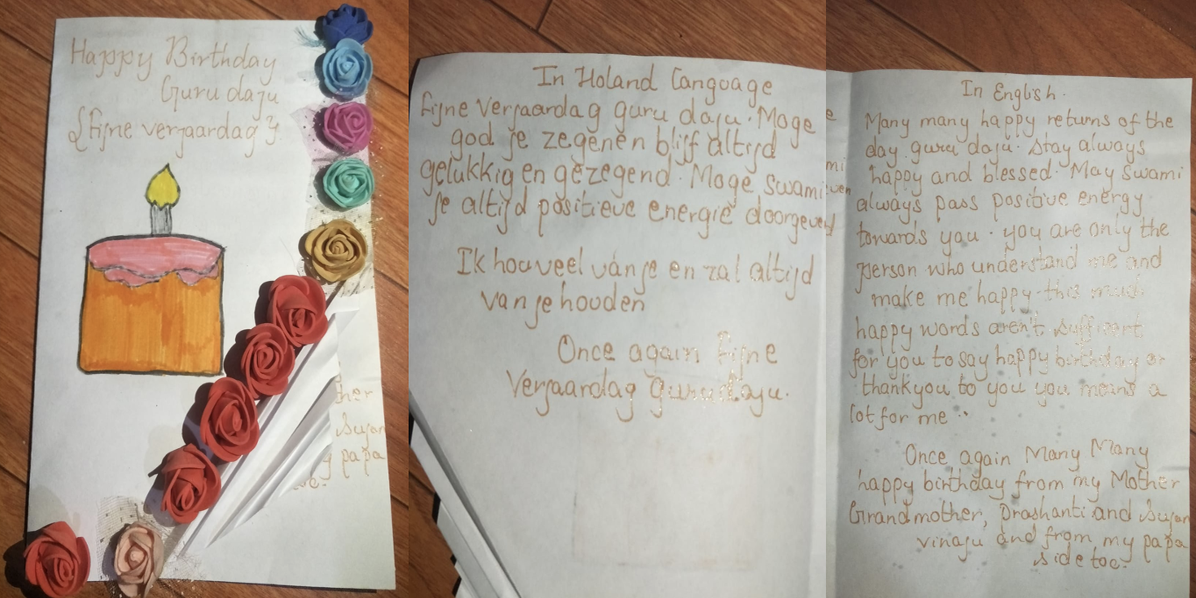 Happy Birthday
Guru daju
{fijne verjaardag}
her
Sujan
papa
In Holand Language
fijne verjaardag guru daju. Moge
god je zegenen blijf altijd
gelukkig en gezegend. Moge swami
je altijd positieve energie doorgeven
Ik hou veel van je en zal altijd
van je houden
Once again fijne
Verjaardag guru daju.
In English.
Many many happy returns of the
day guru daju. Stay always
happy and blessed. May Swami
always pass positive energy
towards you. you are only the
person who understand me and
make me happy this much
happy words aren't sufficant
for you to say happy birthday or
thankyou to you you means a
lot for me..
Once again Many Many
happy birthday from my Mother
Grandmother, Prashanti and Sujan
vinaju and from my papa
side too.